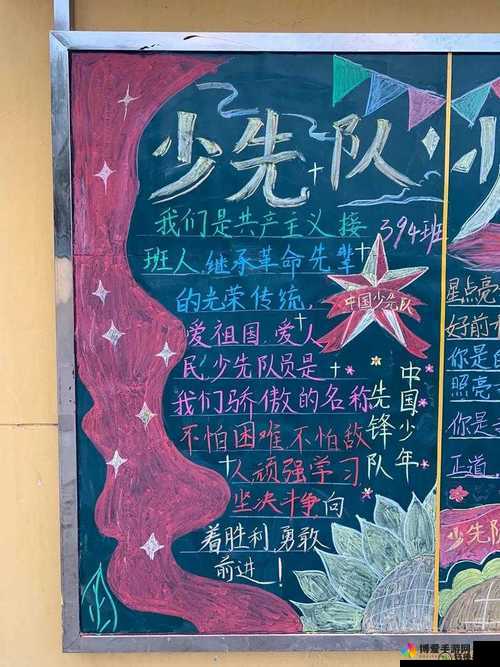 少先队
我们是共产主义接
394班
班人,继承革命先辈
的光荣传统,
中国少先队
爱祖国,爱人
民,少先队员是
我们骄傲的名称
不怕困难,不怕敌
人顽强学习
坚决斗争向
着胜利勇敢
前进!
中国少年
先锋队
星点亮
好前
你是
照亮
你是
正道,
少先队
博爱手游网